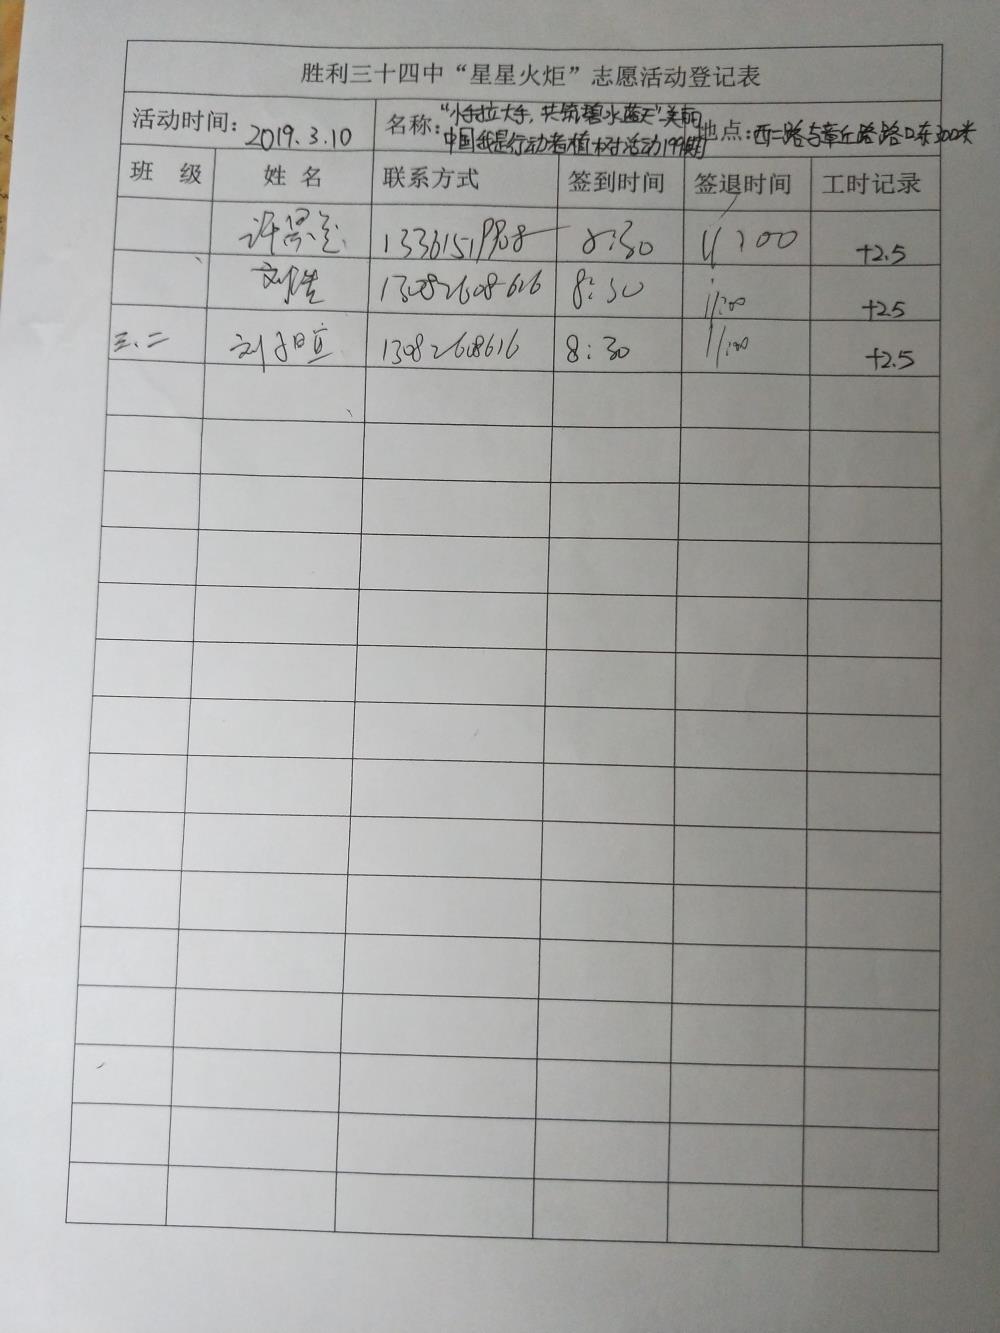 胜利三十四中“星星火炬”志愿活动登记表
活动时间：2019.3.10 名称：“小手拉大手，共筑碧水蓝天”美丽中国我是行动者植树活动199期 地点：西二路与章丘路路口东300米
班 级 姓 名 联系方式 签到时间 签退时间 工时记录
许 13361519908 8:30 11:00 +2.5
刘浩 13082608616 8:30 11:00 +2.5
三.二 刘子暄 13082608616 8:30 11:00 +2.5